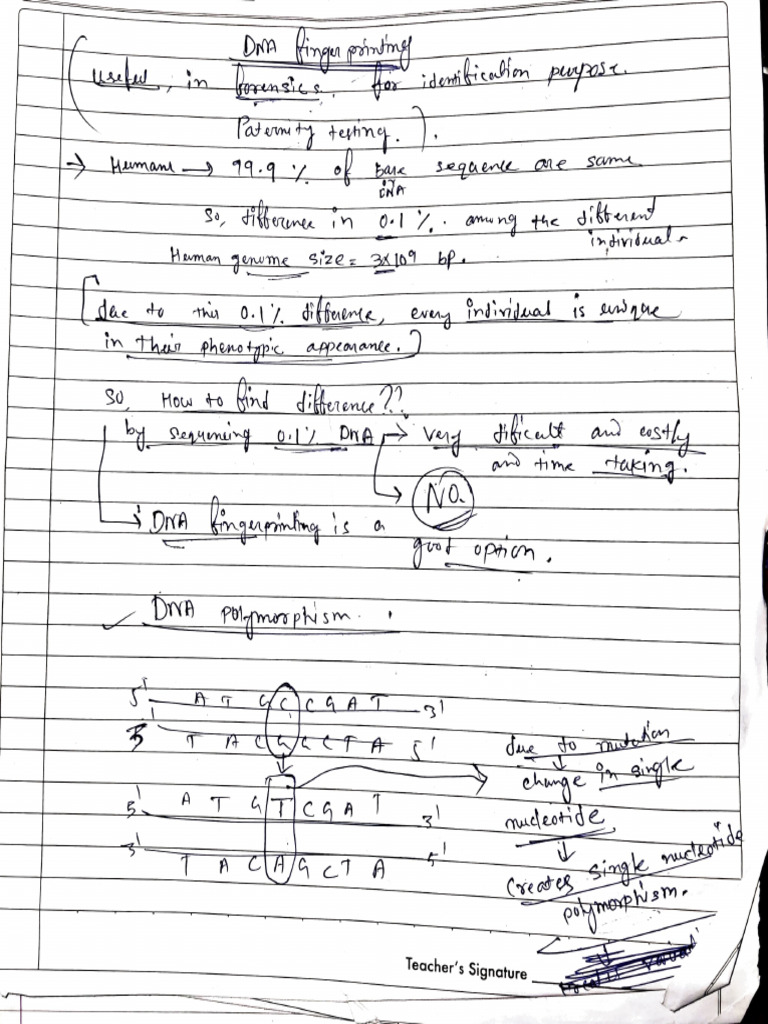 DNA fingerprinting
(useful, in forensics, for identification purpose.
Paternity testing.).
→ Humans → 99.9 % of base sequence are same
in DNA
So, difference in 0.1 %. among the different
individual.
Human genome size = 3x10⁹ bp.
[due to this 0.1% difference, every individual is unique
in their phenotypic appearance.]
So, How to find difference??
by sequencing 0.1% DNA → very dificult and costly
and time taking.
→ NO.
→ DNA fingerprinting is a
good option.
✓ DNA polymorphism.
5' A T G C C G A T 3'
3' T A C G G C T A 5'
due to mutation
↓
change in single
5' A T G T C G A T 3'
nucleotide
3' T A C A G C T A 5'
↓
creates single nucleotide
polymorphism.
Teacher's Signature